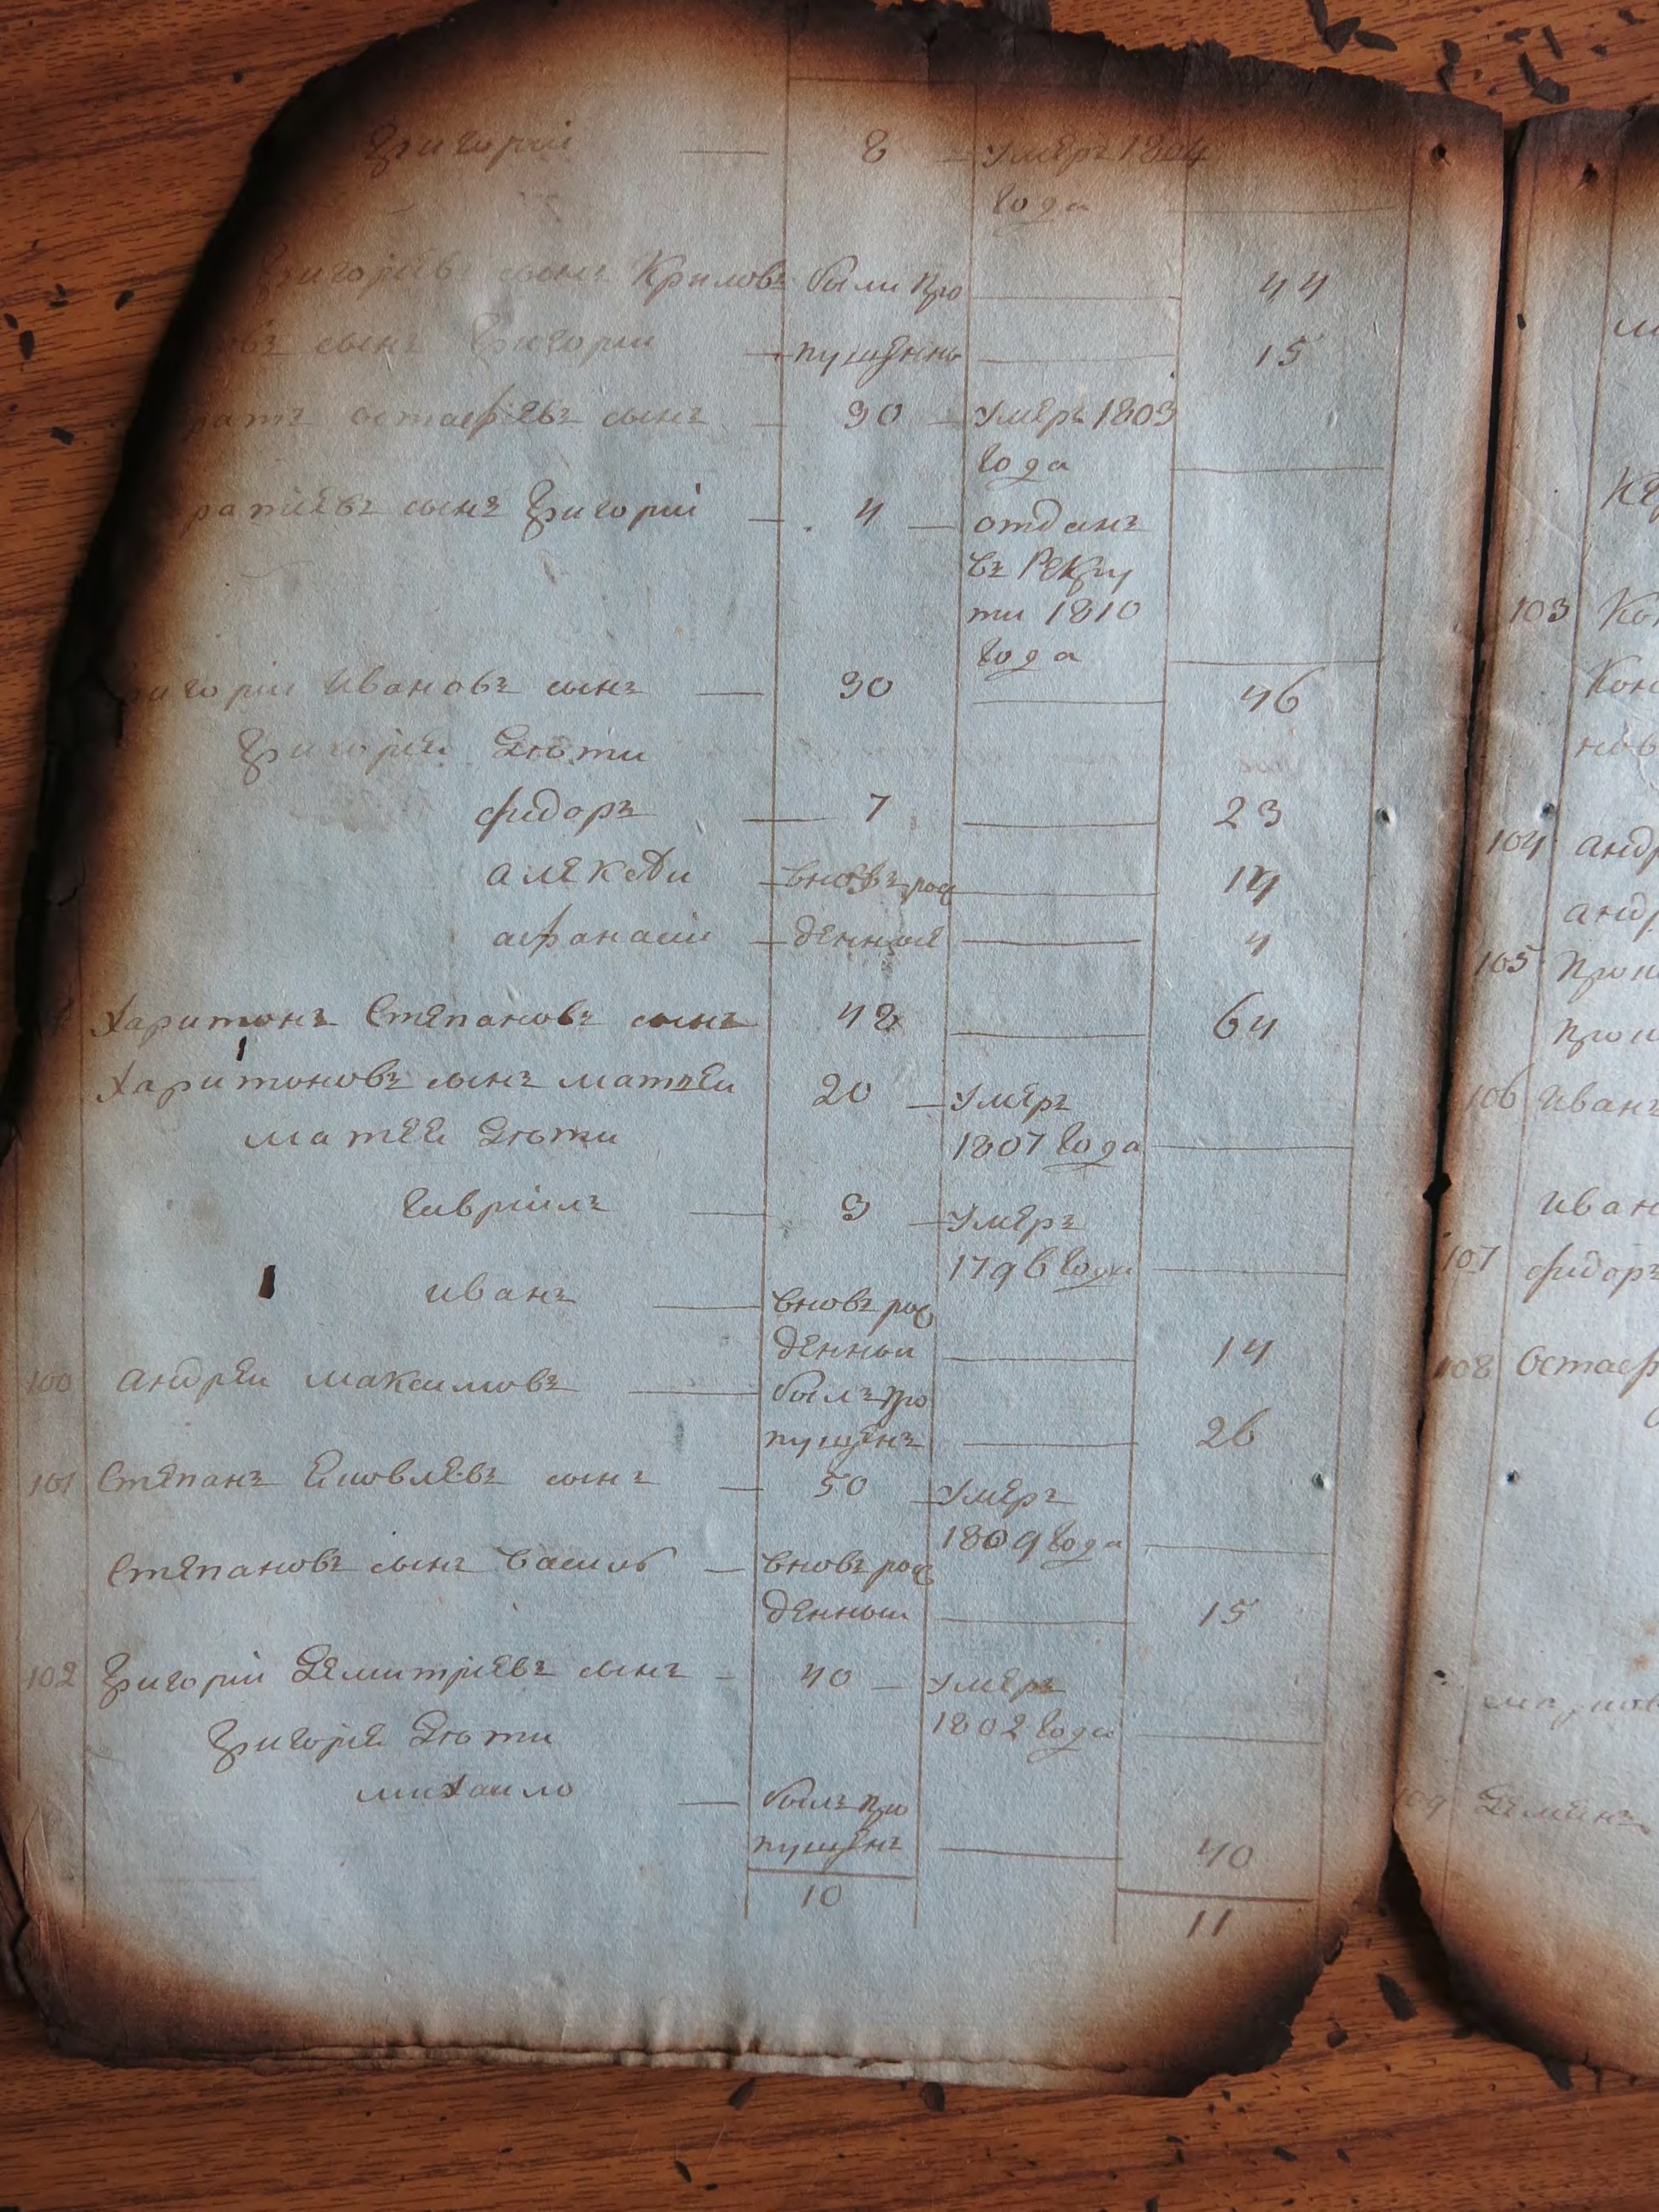 Григорій — 8 — умеръ 1804
года
Григорьевъ сынъ Криловъ были про — 44
овъ сынъ Григории — пущенны — 15
ратъ остафьевъ сынъ — 30 — умеръ 1803
года
ратиевъ сынъ Григорій — 4 — отданъ
въ Рекру
ти 1810
года
ригорій Ивановъ сынъ — 30 — 46
Григорія Дѣти
фидоръ — 7 — 23
алексѣи — вновъ рож — 14
афанасии — денные — 4
Харитонъ Степановъ сынъ 48 — 64
Харитоновъ сынъ матвеи 20 — умеръ
матвея Дѣти 1807 года
Гавриилъ — 9 — умеръ
1796 года
иванъ — вновъ рож
денныи — 14
100 андреи максимовъ — былъ про
пущенъ — 26
101 Степанъ Еиовлевъ сынъ — 50 — умеръ
1809 года
Степановъ сынъ василь — вновъ рож
денныи — 15
102 Григории Демитриевъ сынъ — 40 — умеръ
Григория Дѣти 1802 года
михаило — былъ про
пущенъ — 40
10 11
103 Ко
Кон
нов
104 андр
андр
105 Прон
прон
106 Иванъ
иван
107 фидоръ
108 Остаф